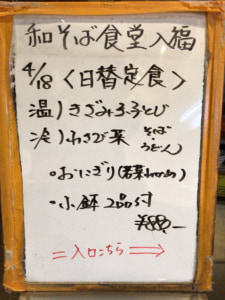 和そば食堂入福
4/18 〈日替定食〉
温)きざみ
冷)わさび菜 そば・うどん)
・おにぎり(若菜わかめ)
・小鉢2品付
¥880-
=入口こちら⇒